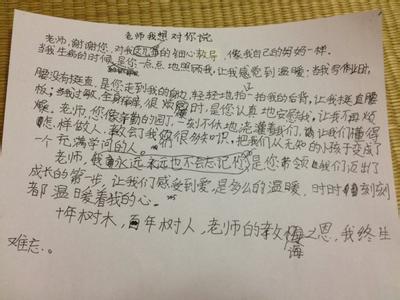 老师我想对你说
老师,谢谢您,对我的细心教导,像我自己的妈妈一样。
当我生病的时候,是你一点点地照顾我,让我感觉到温暖;当我写作业时,
腰没有挺直,是您走到我的身边,轻轻地拍一拍我的后背,让我挺直腰
板;当我过敏,全身很烦时,是您认真地安慰我,让我不再烦
燥。老师,您像辛勤的园丁,一刻不休地浇灌着我们,让我们懂得
怎样做人,教会我们很多知识,把我们从无知的小孩子变成了
一个充满学问的人。
老师,我永远永远也不会忘记你,是您带领我们迈出了
成长的第一步,让我们感受到爱,是多么的温暖,时时刻刻
都温日爱着我的心。
十年树木,百年树人,老师的教诲之恩,我终生
难忘。